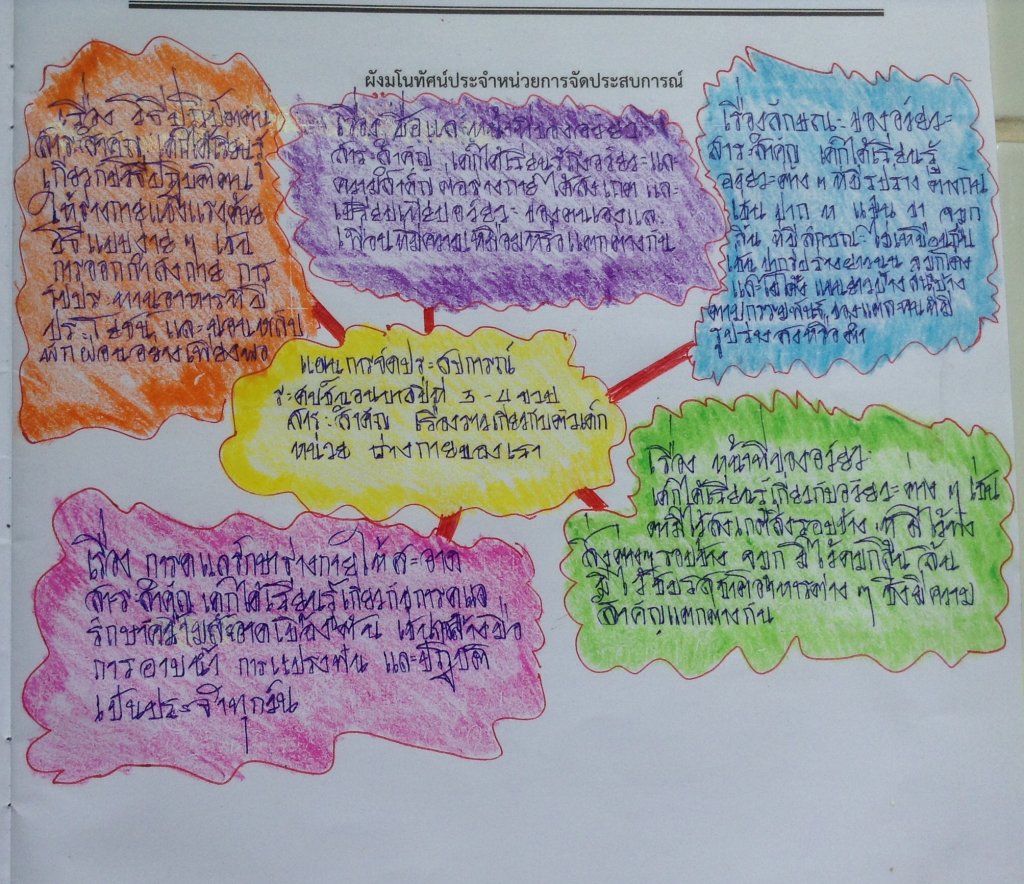 ผังมโนทัศน์ประจำหน่วยการจัดประสบการณ์
เรื่อง วิธีปฏิบัติตน
สาระสำคัญ เด็กได้เรียนรู้
เกี่ยวกับวิธีปฏิบัติตน
ให้ร่างกายแข็งแรงด้วย
วิธีแบบง่าย ๆ เช่น
การออกกำลังกาย การ
รับประทานอาหารที่มี
ประโยชน์ และนอนหลับ
พักผ่อนอย่างเพียงพอ
เรื่อง ชื่อและหน้าที่ของอวัยวะ
สาระสำคัญ เด็กได้เรียนรู้ถึงอวัยวะและ
ความสำคัญต่อร่างกาย ได้สังเกต และ
เปรียบเทียบอวัยวะของตนเองและ
เพื่อนที่มีความเหมือนหรือแตกต่างกัน
เรื่องลักษณะของอวัยวะ
สาระสำคัญ เด็กได้เรียนรู้
อวัยวะต่าง ๆ ที่มีรูปร่าง ต่างกัน
เช่น ปาก หู แขน ขา จมูก
ลิ้น ที่มีลักษณะไม่เหมือนกัน
เช่น ปากรูปร่างยาวนูน จมูกโด่ง
และไม่โด่ง แขนยาวบ้างสั้นบ้าง
ตามกรรมพันธุ์ ของแต่ละคนที่มี
รูปร่างสูงหรือต่ำ
แผนการจัดประสบการณ์
ระดับชั้นอนุบาลปีที่ 3-4 ขวบ
สาระสำคัญ เรื่องราวเกี่ยวกับตัวเด็ก
หน่วย ร่างกายของเรา
เรื่อง หน้าที่ของอวัยวะ
เด็กได้เรียนรู้เกี่ยวกับอวัยวะต่าง ๆ เช่น
ตามีไว้สังเกตสิ่งรอบข้าง หูมีไว้ฟัง
สิ่งต่างๆ รอบข้าง จมูก มีไว้ดมกลิ่น ลิ้น
มีไว้ชิมรสชาติอาหารต่าง ๆ ซึ่งมีความ
สำคัญแตกต่างกัน
เรื่อง การดูแลรักษาร่างกายให้สะอาด
สาระสำคัญ เด็กได้เรียนรู้เกี่ยวกับการดูแล
รักษาความสะอาดของตน เช่น การล้างมือ
การอาบน้ำ การแปรงฟัน และปฏิบัติ
เป็นประจำทุกวัน